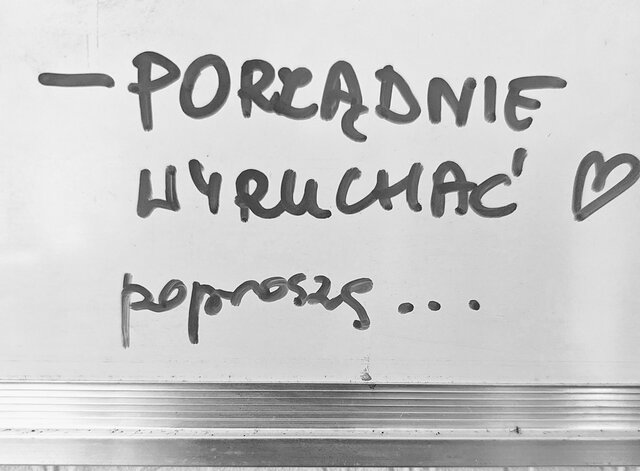 - PORZĄDNIE
WYRUCHAĆ ♡
poproszę...